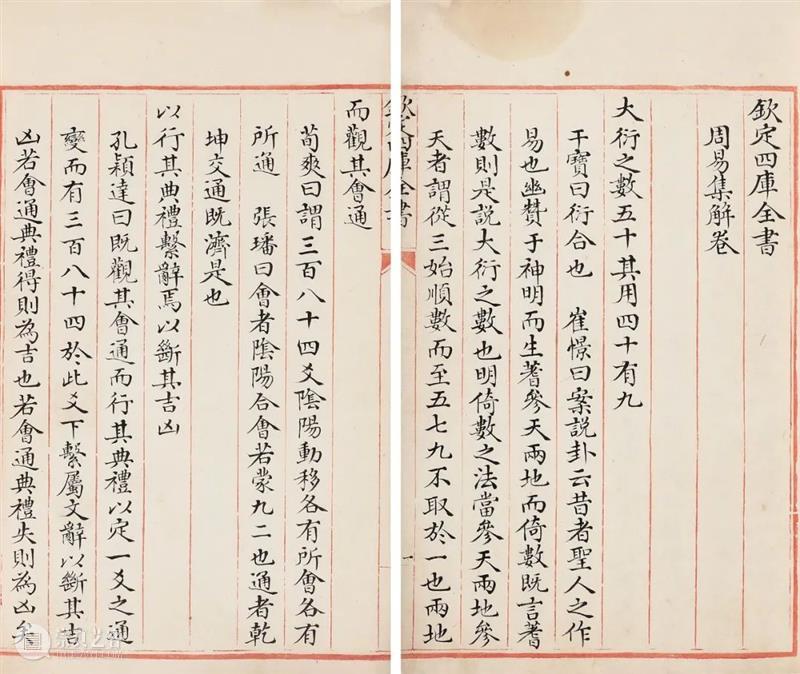 欽定四庫全書
周易集解卷
大衍之數五十其用四十有九
干寶曰衍合也 崔憬曰案說卦云昔者聖人之作
易也幽贊于神明而生蓍參天兩地而倚數既言蓍
數則是說大衍之數也明倚數之法當參天兩地參
天者謂從三始順數而至五七九不取於一也兩地
欽定四庫全書
一
而觀其會通
荀爽曰謂三百八十四爻陰陽動移各有所會各有
所通 張璠曰會者陰陽合會若蒙九二也通者乾
坤交通既濟是也
以行其典禮繫辭焉以斷其吉凶
孔穎達曰既觀其會通而行其典禮以定一爻之通
變而有三百八十四於此爻下繫屬文辭以斷其吉
凶若會通典禮得則為吉也若會通典禮失則為凶矣